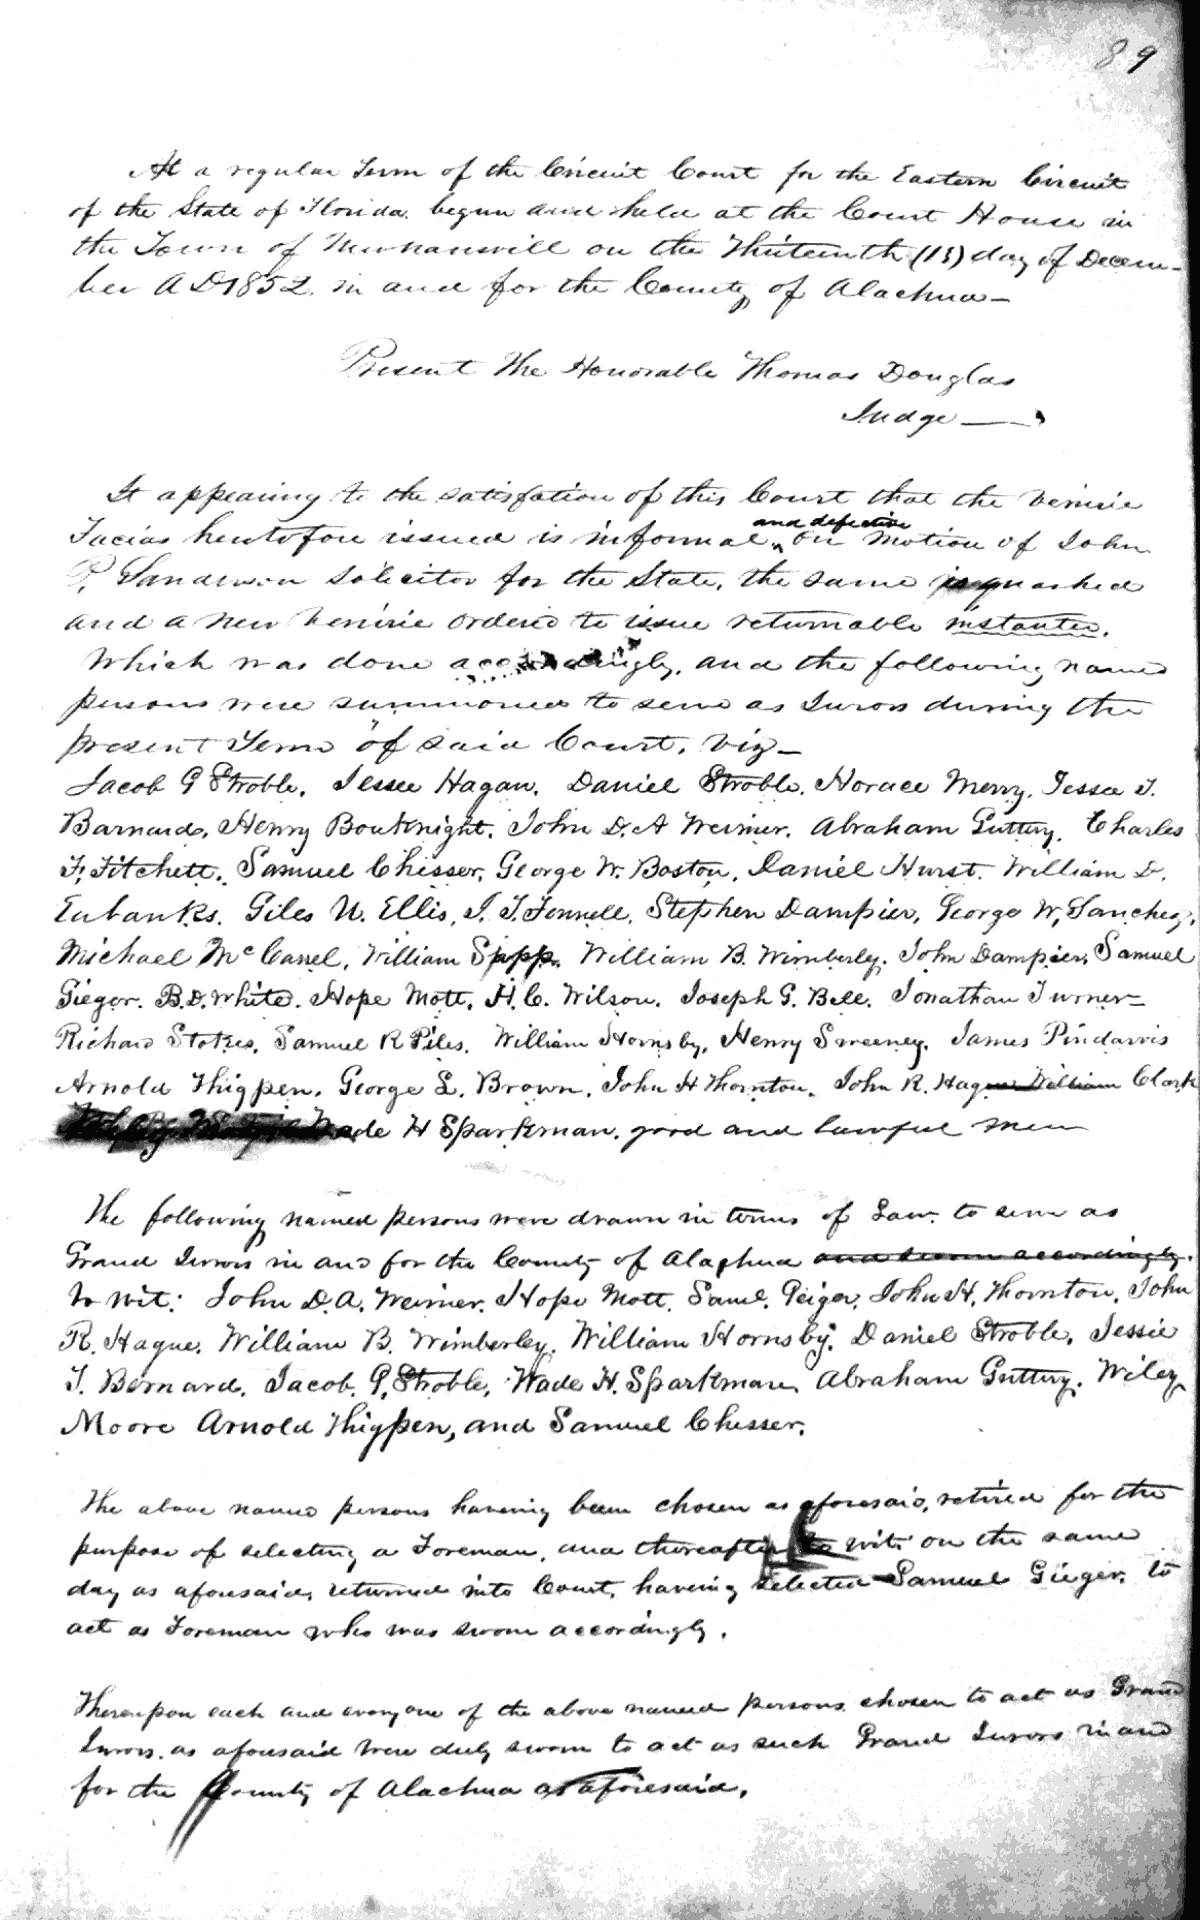 89
At a regular Term of the Circuit Court for the Eastern Circuit
of the State of Florida. begun and held at the Court House in
the Town of Newnansvill on the Thirteenth (13) day of Decem-
ber A D 1852. in and for the County of Alachua—
Present The Honorable Thomas Douglas
Judge —
It appearing to the satisfation of this Court that the venirie
Facias heretofore issued is informal and defective on motion of John
P. Sanderson Solicitor for the State, the same is quashed
and a new venirie ordered to issue returnable instanter.
Which was done accordingly, and the following named
persons were summoned to serve as Jurors during the
present Term of said Court, viz—
Jacob G Stroble. Jessee Hagan. Daniel Stroble. Horace Merry. Jessee T.
Barnard, Henry Bouknight. John D. A Weimer. Abraham Guttery. Charles
F. Fitchett. Samuel Chisser. George W. Boston, Daniel Hurst. William D.
Eubanks. Giles U. Ellis, J. T. Fennell. Stephen Dampier, George W. Sanchez,
Michael McCanel, William Sapp. William B. Wimberly. John Dampier. Samuel
Gieger. B. D. White. Hope Mott. H. C. Wilson. Joseph G. Bell. Jonathan Turner—
Richard Stokes. Samuel R Piles. William Hornsby, Henry Sweeney. James Pindarvis
Arnold Thigpen. George L. Brown. John H Thornton. John R. Hague William Clark
Wade H Sparkman. good and lawful men
The following named persons were drawn in terms of Law. to serve as
Grand Jurors in and for the County of Alachua and sworn accordingly.
to wit: John D. A. Weimer. Hope Mott. Saml. Geiger. John H. Thornton. John
R. Hague. William B. Wimberley. William Hornsby. Daniel Stroble. Jessie
T. Bernard. Jacob. G. Stroble. Wade H. Sparkman Abraham Guttery. Wiley
Moore Arnold Thigpen, and Samuel Chesser.
The above named persons having been chosen as aforesaid, retired for the
purpose of selecting a Foreman, and thereafter to wit: on the same
day as aforesaid, returned into Court, having selected Samuel Gieger. to
act as Foreman who was sworn accordingly.
Thereupon each and every one of the above named persons chosen to act as Grand
Jurors. as aforesaid were duly sworn to act as such Grand Jurors in and
for the County of Alachua as aforesaid.